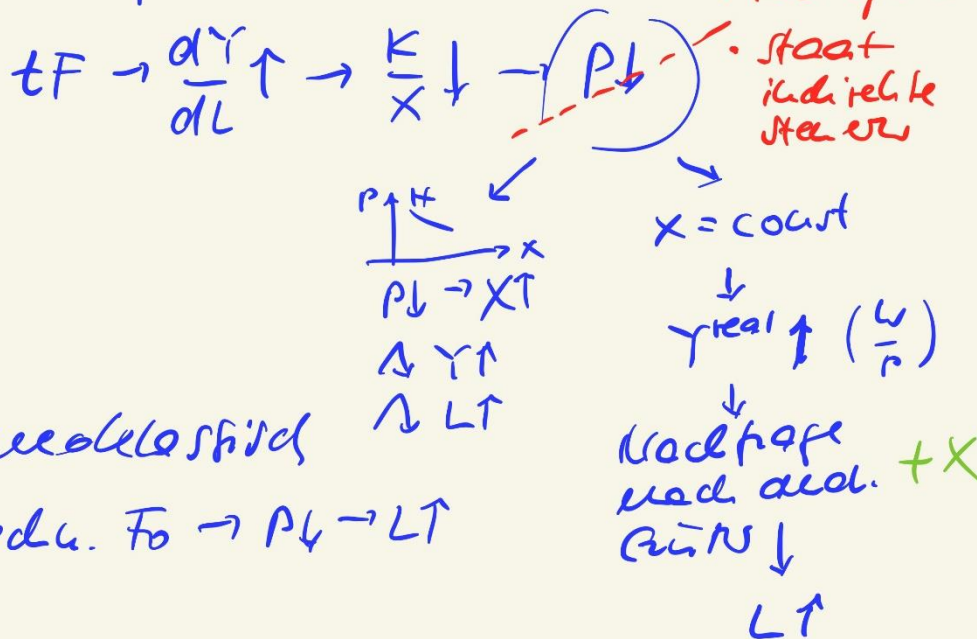 tF → dY/dL ↑ → K/X ↓ → P↓
• Staat
indirekte
Steuern
P H
x
P↓ → X↑
↷ Y↑
↷ L↑
X = const
↓
Y real ↑ (W/P)
↓
Nachfrage
nach and.
Gütern ↓
L↑
+X
neoklassisch
techn. Fo → P↓ → L↑